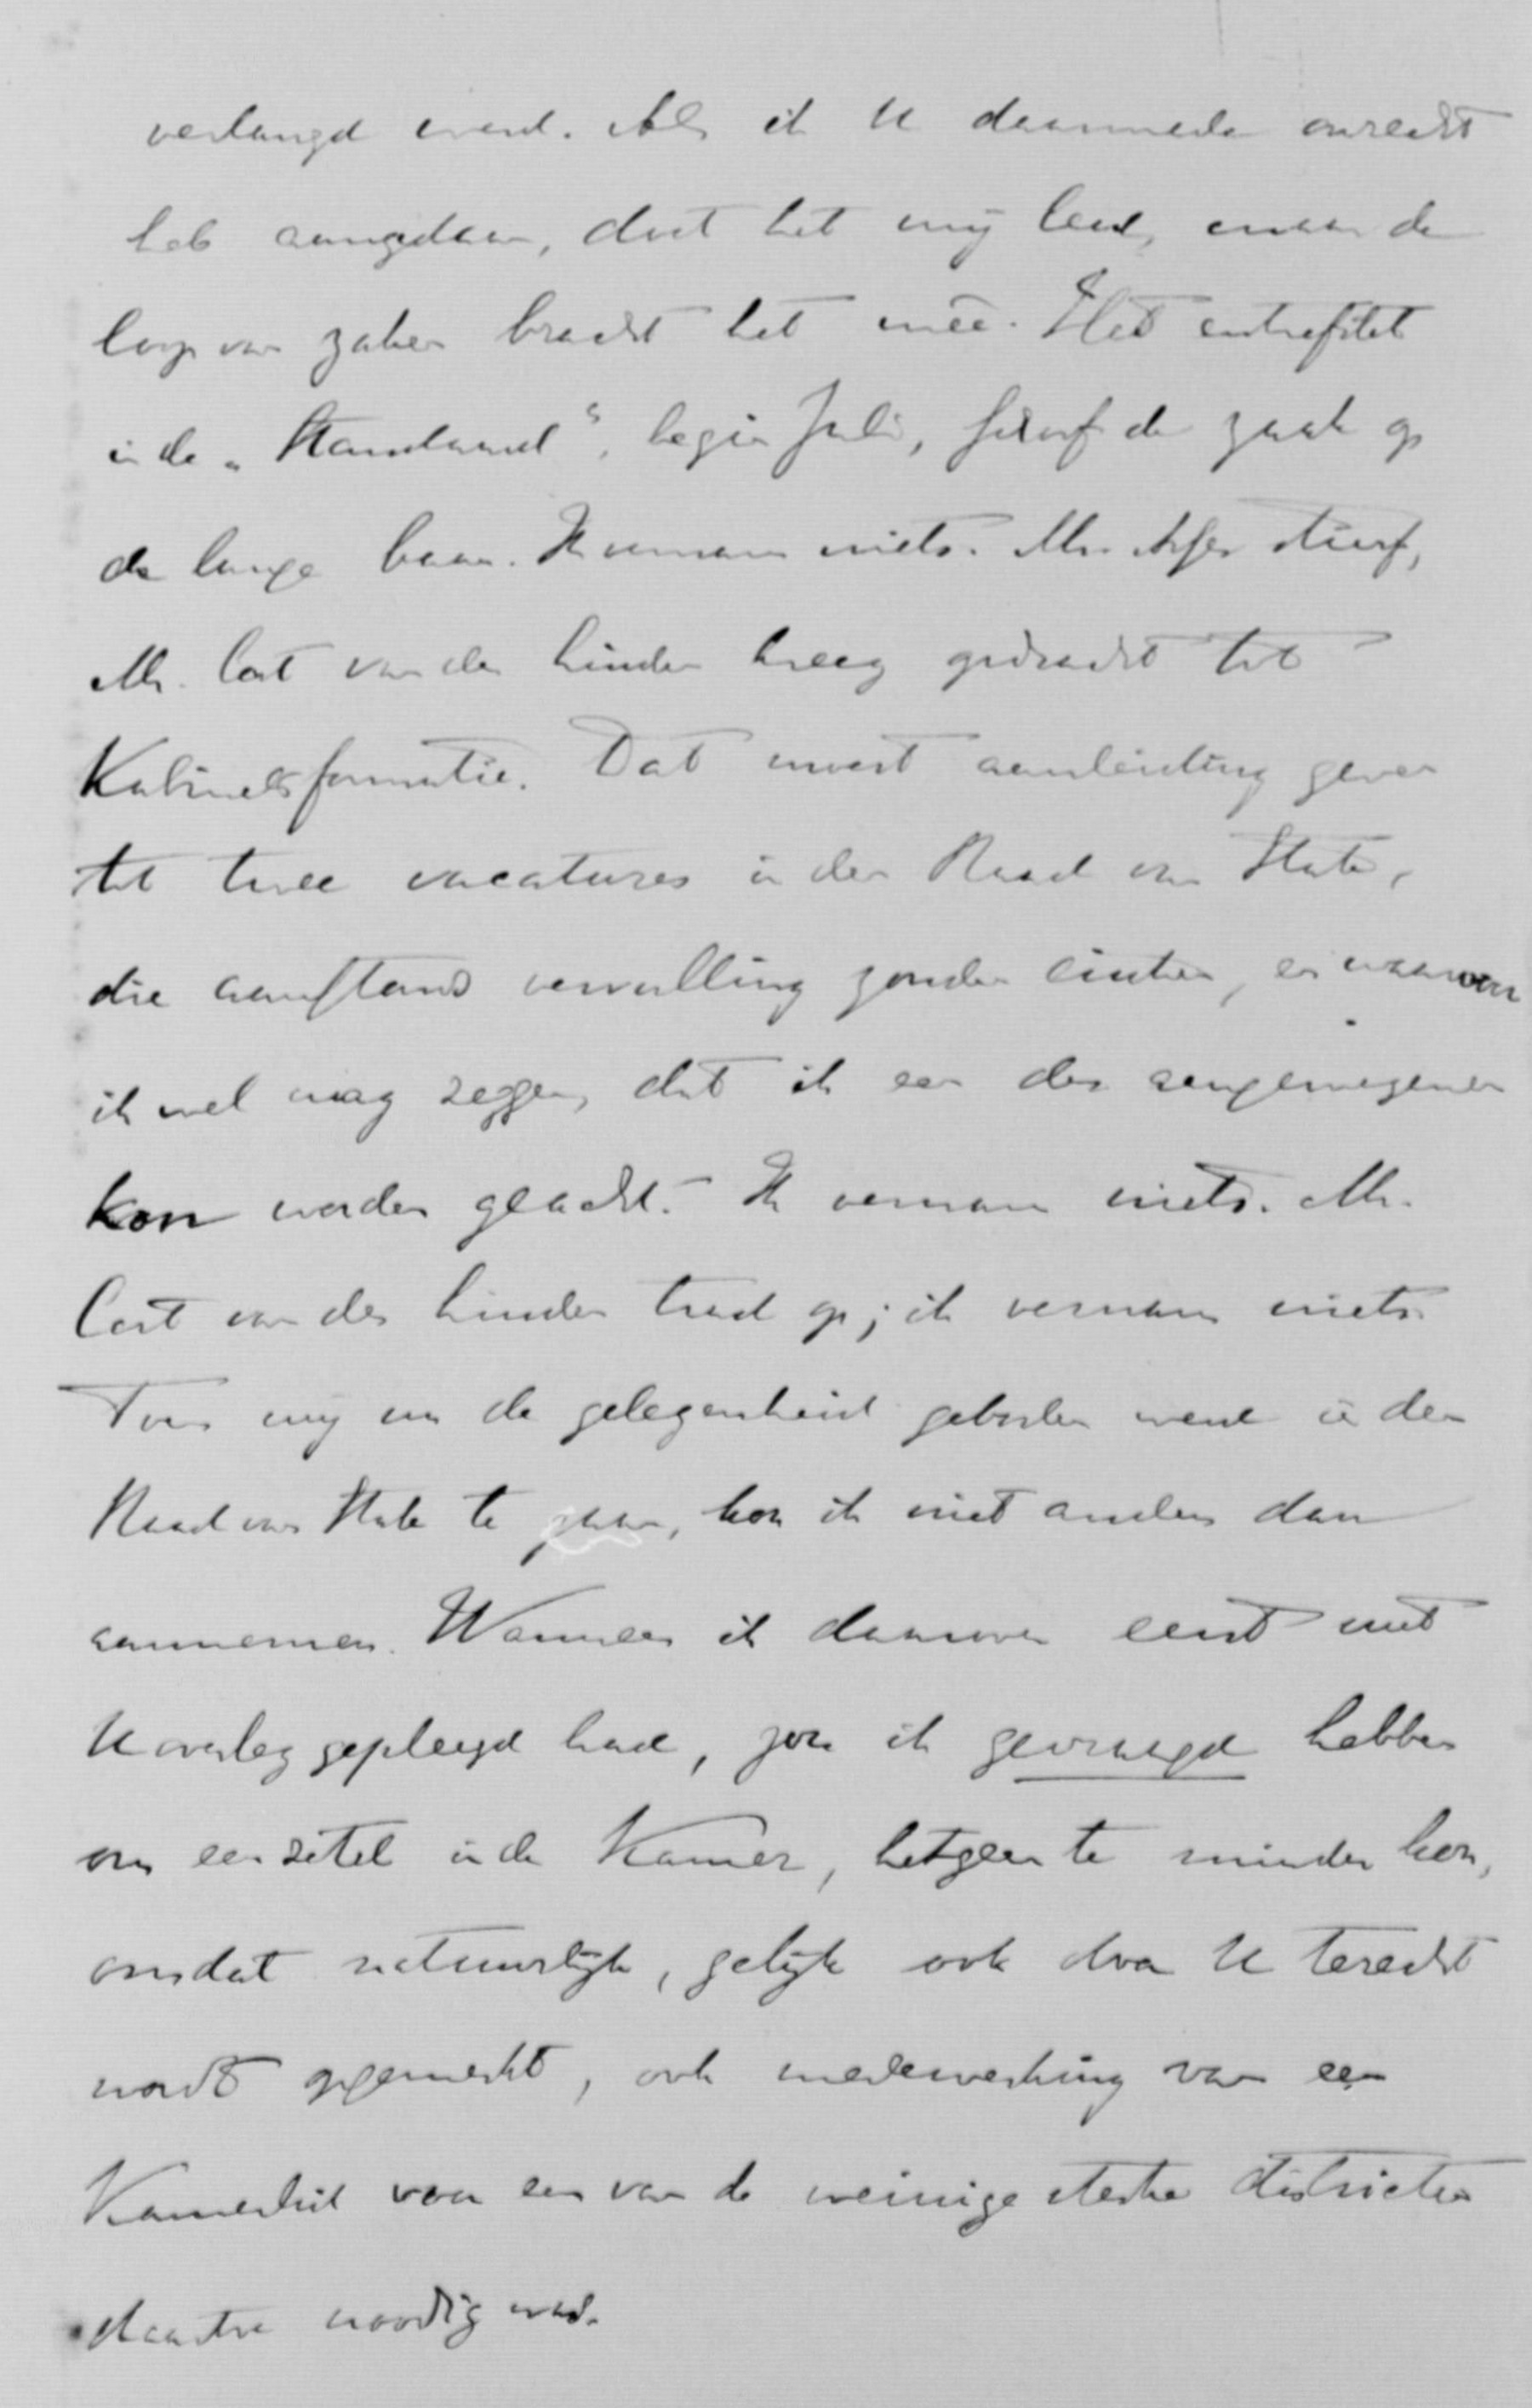 verlangd werd. Als ik U daarmede onrecht
heb aangedaan, doet het mij leed, maar de
loop van zaken bracht het meê. Het entrefilet
in de „Standaard", begin Juli, schoof de zaak op
de lange baan. Ik vernam niets. Mr. Asser stierf,
Mr. Cort van der Linden kreeg opdracht tot
Kabinetsformatie. Dat moest aanleiding geven
tot twee vacatures in den Raad van State,
die aanstonds vervulling zouden eischen, en waarvan
ik wel mag zeggen, dat ik een der aangewezenen
kon worden geacht. Ik vernam niets. Mr.
Cort van der Linden trad op; ik vernam niets.
Toen mij nu de gelegenheid geboden werd in den
Raad van State te gaan, kon ik niet anders dan
aannemen. Wanneer ik daarover eerst met
U overleg gepleegd had, zou ik gevraagd hebben
om een zetel in de Kamer, hetgeen te minder kon,
omdat natuurlijk, gelijk ook door U terecht
wordt opgemerkt, ook medewerking van een
Kamerlid voor een van de weinige sterke districten
daartoe noodig was.